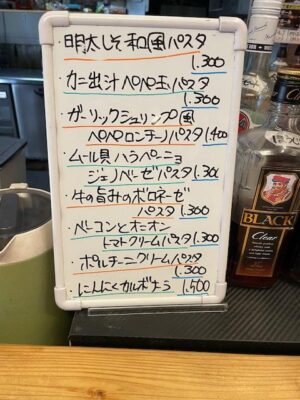 ・明太しそ和風パスタ
1.300
・カニ出汁ペペ玉パスタ
1.300
・ガーリックシュリンプ風
ペペロンチーノパスタ 1,400
・ムール貝ハラペーニョ
ジェノベーゼパスタ 1.300
・牛の旨みのボロネーゼ
パスタ 1.300
・ベーコンとオニオン
トマトクリームパスタ 1.300
・ポルチーニクリームパスタ
1.300
・にんにくカルボナーラ 1,500
BLACK
Clear